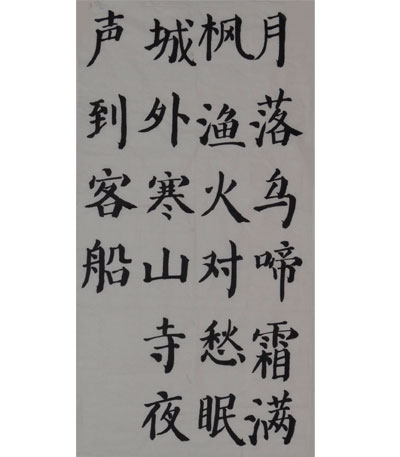 月落乌啼霜满
枫渔火对愁眠
城外寒山寺夜
声到客船